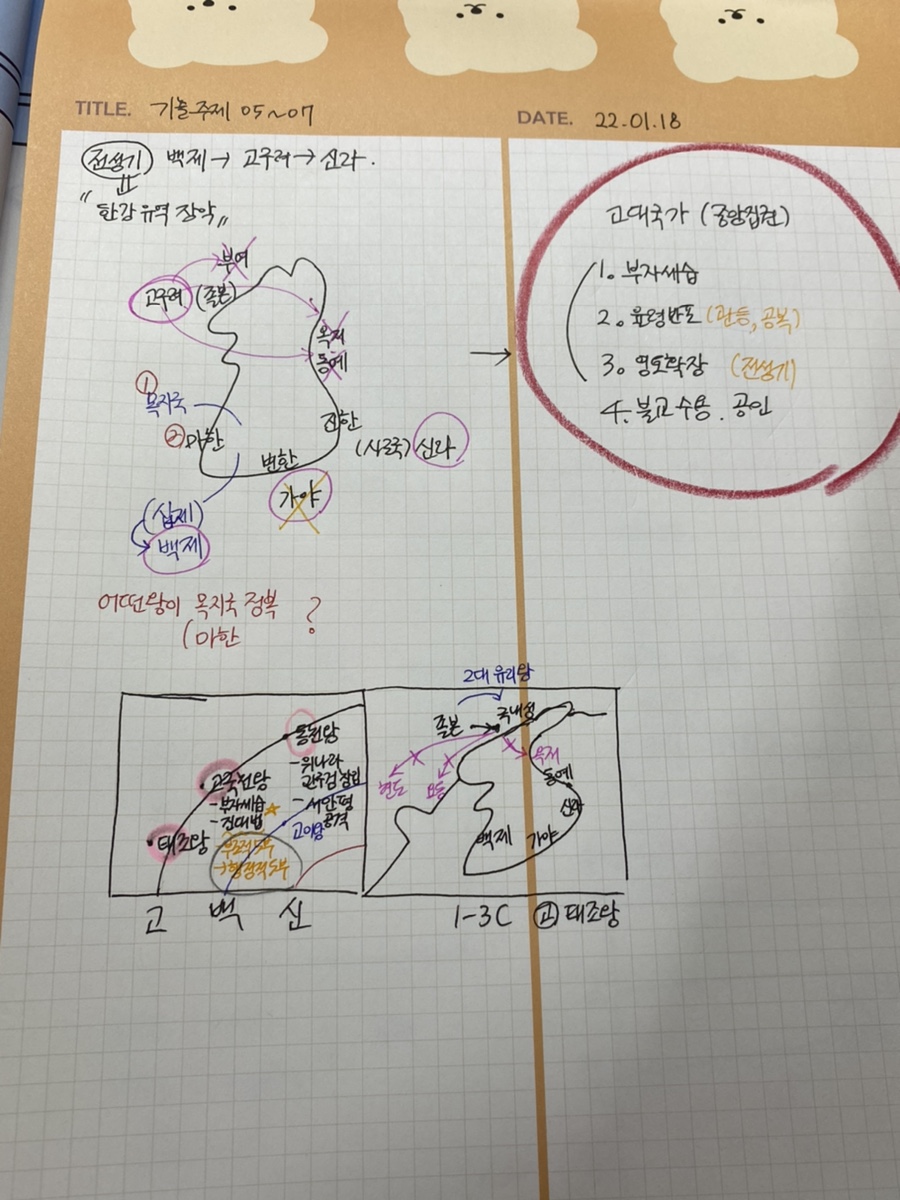 TITLE. 기출주제 05~07
DATE. 22.01.18
전성기 백제→ 고구려→ 신라.
"한강 유역 장악"
부여
고구려 (졸본)
옥저
동예
① 목지국
② 마한
진한
(사로국) 신라
변한
가야
(십제)
백제
어떤왕이 목지국 정복 ?
(마한
고대국가 (중앙집권)
1. 부자세습
2. 율령반포 (관등, 공복)
3. 영토확장 (전성기)
4. 불교수용. 공인
동천왕
-위나라
관구검 침입
-서안평
공격
고국천왕
-부자세습
-진대법
부족적 5부
→행정적 5부
고이왕
태조왕
고 백 신
2대 유리왕
졸본 → 국내성
현도
요동
옥저
동예
신라
백제 가야
1-3C 고 태조왕